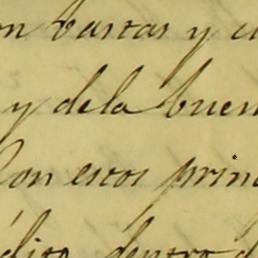 on bastas y cu
y dela buen
Con estos prin
édico, dentro d